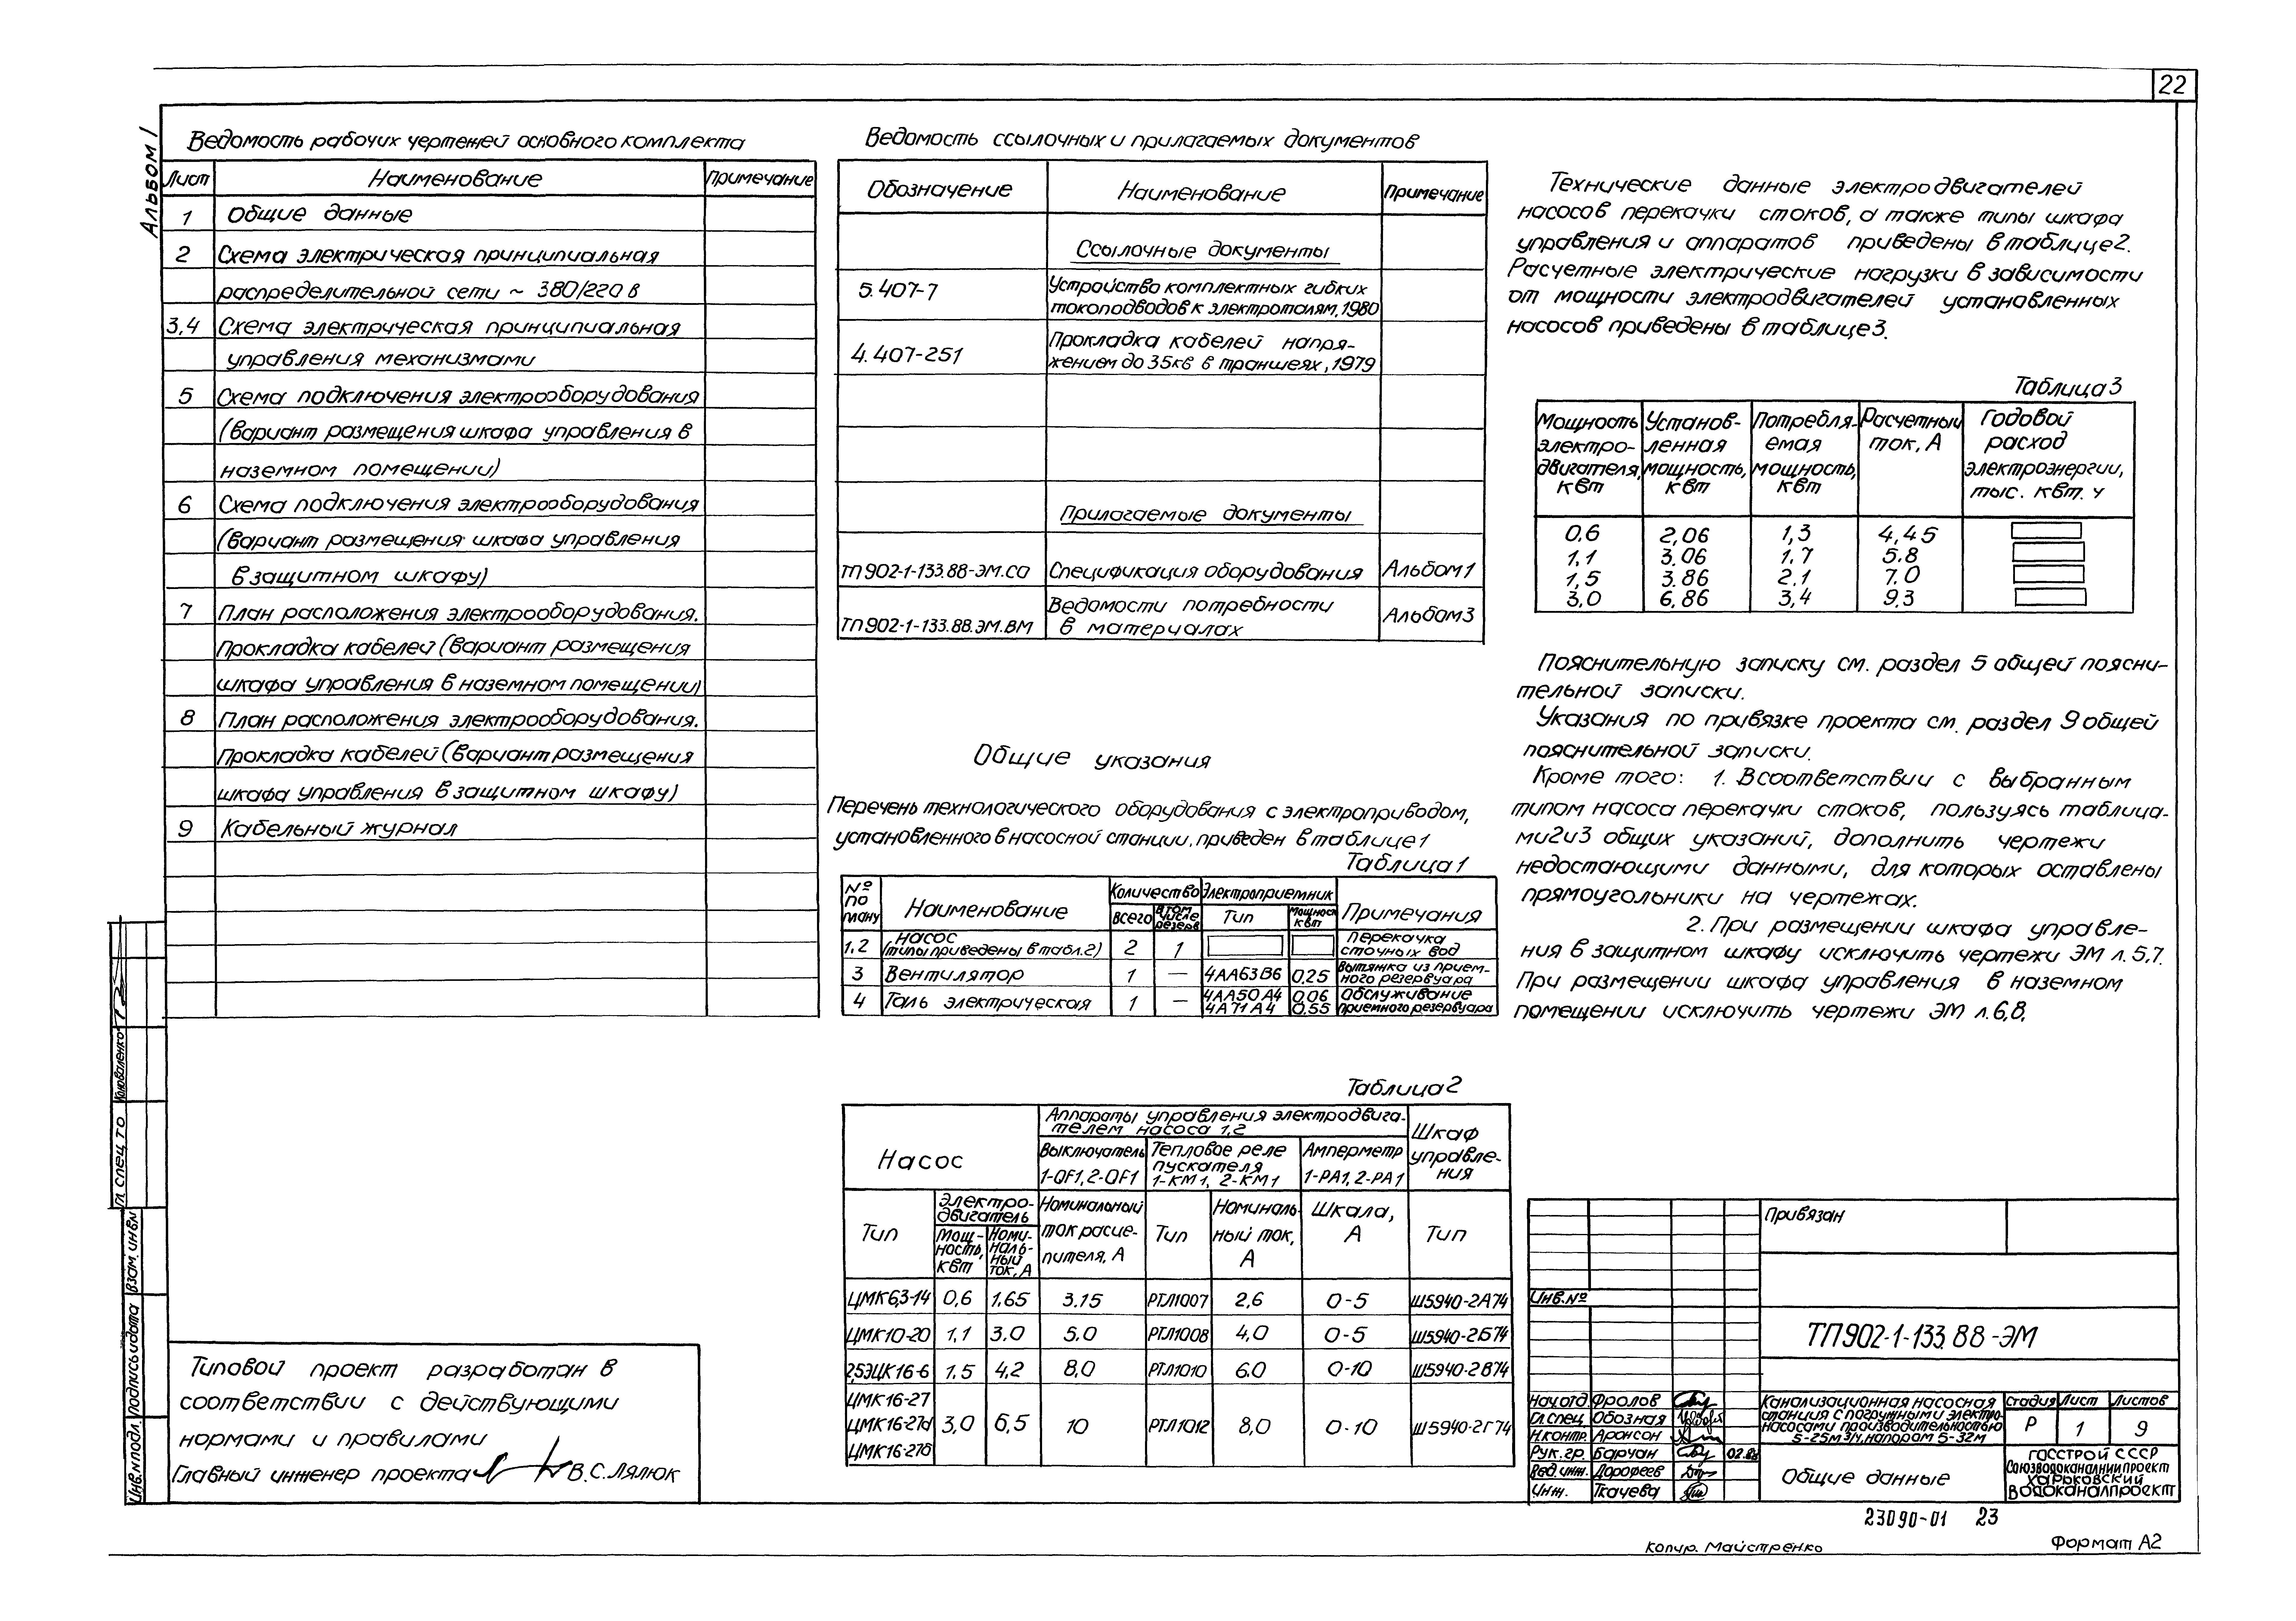 22
Альбом 1
Ведомость рабочих чертежей основного комплекта
Лист Наименование Примечание
1 Общие данные
2 Схема электрическая принципиальная
распределительной сети ~ 380/220 в
3,4 Схема электрическая принципиальная
управления механизмами
5 Схема подключения электрооборудования
(вариант размещения шкафа управления в
наземном помещении)
6 Схема подключения электрооборудования
(вариант размещения шкафа управления
в защитном шкафу)
7 План расположения электрооборудования.
Прокладка кабелей (вариант размещения
шкафа управления в наземном помещении)
8 План расположения электрооборудования.
Прокладка кабелей (вариант размещения
шкафа управления в защитном шкафу)
9 Кабельный журнал
Ведомость ссылочных и прилагаемых документов
Обозначение Наименование Примечание
Ссылочные документы
5.407-7 Устройство комплектных гибких
токоподводов к электроталям, 1980
4.407-251 Прокладка кабелей напря-
жением до 35кв в траншеях, 1979
Прилагаемые документы
ТП902-1-133.88-ЭМ.СО Спецификация оборудования Альбом1
ТП902-1-133.88.ЭМ.ВМ Ведомости потребности
в материалах Альбом3
Общие указания
Перечень технологического оборудования с электроприводом,
установленного в насосной станции, приведен в таблице 1
Таблица1
№ по плану Наименование Количество Электроприемник Примечания
всего в том числе резерв Тип Мощност квт
1,2 насос (типы приведены в табл.2) 2 1 перекачка сточных вод
3 Вентилятор 1 — 4АА63В6 0,25 вытяжка из прием-
ного резервуара
4 Таль электрическая 1 — 4АА50А4 0,06 Обслуживание
4А71А4 0,55 приемного резервуара
Таблица2
Насос Аппараты управления электродвига-
телем насоса 1,2 Шкаф управле-
ния
Выключатель 1-QF1, 2-QF1 Тепловое реле пускателя 1-КМ1, 2-КМ1 Амперметр 1-РА1, 2-РА1
Тип Электро-
двигатель Номинальный ток расце-
пителя, А Тип Номиналь-
ный ток, А Шкала, А Тип
Мощ-
ность, квт Номи-
наль-
ный ток, А
ЦМК6,3-14 0,6 1,65 3.15 РТЛ1007 2,6 0-5 Ш5940-2А74
ЦМК10-20 1,1 3,0 5.0 РТЛ1008 4,0 0-5 Ш5940-2Б74
2,5ЭЦК16-6 1,5 4,2 8,0 РТЛ1010 6.0 0-10 Ш5940-2В74
ЦМК16-27
ЦМК16-27а 3,0 6,5 10 РТЛ1012 8,0 0-10 Ш5940-2Г74
ЦМК16-27б
Технические данные электродвигателей
насосов перекачки стоков, а также типы шкафа
управления и аппаратов приведены в таблице 2.
Расчетные электрические нагрузки в зависимости
от мощности электродвигателей установленных
насосов приведены в таблице 3.
Таблица 3
Мощность электро-
двигателя, квт Установ-
ленная мощность, квт Потребля-
емая мощность, квт Расчетный ток, А Годовой расход электроэнергии, тыс. квт. ч
0,6 2,06 1,3 4,45
1,1 3.06 1,7 5.8
1,5 3.86 2.1 7.0
3,0 6,86 3,4 9.3
Пояснительную записку см. раздел 5 общей поясни-
тельной записки.
Указания по привязке проекта см. раздел 9 общей
пояснительной записки.
Кроме того: 1. В соответствии с выбранным
типом насоса перекачки стоков, пользуясь таблица-
ми 2 и 3 общих указаний, дополнить чертежи
недостающими данными, для которых оставлены
прямоугольники на чертежах.
2. При размещении шкафа управле-
ния в защитном шкафу исключить чертежи ЭМ л.5,7.
При размещении шкафа управления в наземном
помещении исключить чертежи ЭМ л.6,8.
Типовой проект разработан в
соответствии с действующими
нормами и правилами
Главный инженер проекта В.С. Лялюк
Гл. спец. ТО Коноваленко
Инв.№подл. Подпись и дата Взам. инв.№
Привязан
Инв.№
ТП902-1-133.88-ЭМ
Нач.отд. Фролов
Гл.спец. Обозная
Н.контр. Аронсон
Рук.гр. Барчан 02.88
Вед.инж. Дорофеев
Инж. Ткачева
Канализационная насосная
станция с погружными электро-
насосами производительностью
5-25м3/ч, напором 5-32м
Стадия Лист Листов
Р 1 9
Общие данные
Госстрой СССР
Союзводоканалниипроект
Харьковский
Водоканалпроект
23090-01 23
Копир. Майстренко Формат А2